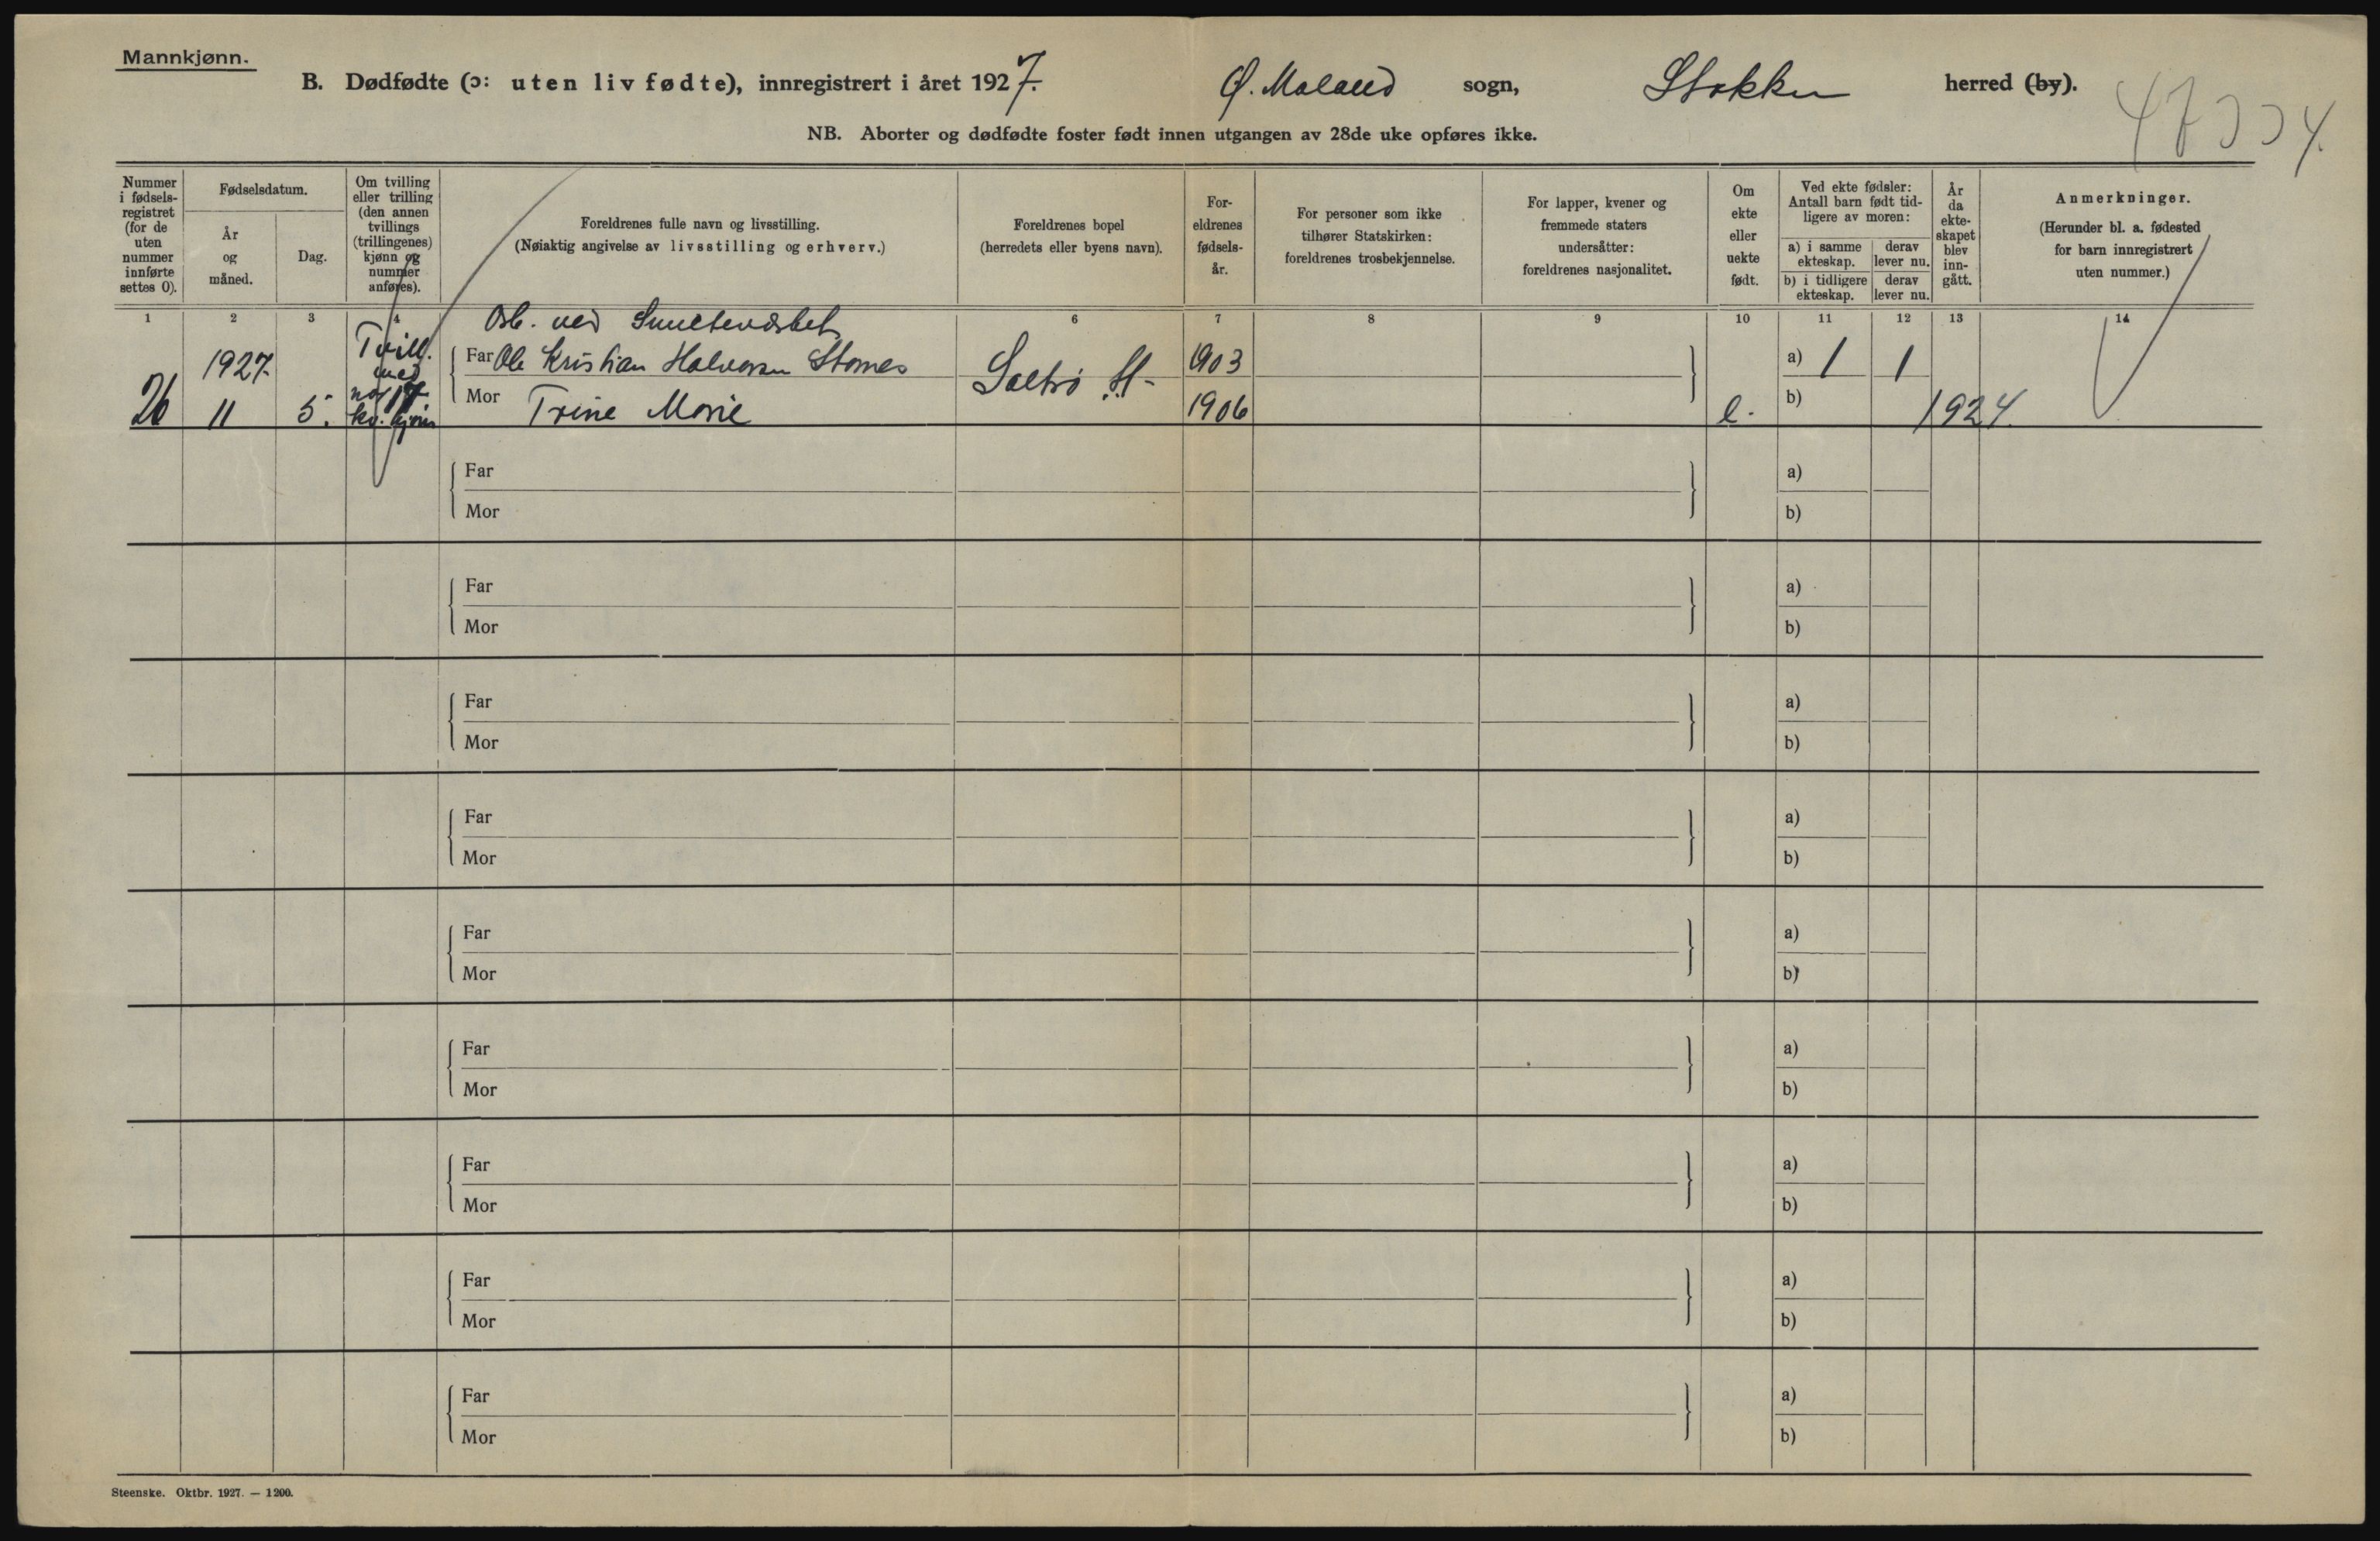 Mannkjønn.
B. Dødfødte (ɔ: uten liv fødte), innregistrert i året 1927. Ø. Moland sogn, Stokken herred (by).
NB. Aborter og dødfødte foster født innen utgangen av 28de uke opføres ikke.
Nummer i fødsels-registret (for de uten nummer innførte settes 0).
Fødselsdatum.
År og måned.
Dag.
Om tvilling eller trilling (den annen tvillings (trillingenes) kjønn og nummer anføres).
Foreldrenes fulle navn og livsstilling.
(Nøiaktig angivelse av livsstilling og erhverv.)
Foreldrenes bopel
(herredets eller byens navn).
For-eldrenes fødsels-år.
For personer som ikke tilhører Statskirken: foreldrenes trosbekjennelse.
For lapper, kvener og fremmede staters undersåtter: foreldrenes nasjonalitet.
Om ekte eller uekte født.
Ved ekte fødsler: Antall barn født tid-ligere av moren:
a) i samme ekteskap.
derav lever nu.
b) i tidligere ekteskap.
derav lever nu.
År da ekte-skapet blev inn-gått.
Anmerkninger.
(Herunder bl. a. fødested for barn innregistrert uten nummer.)
1 2 3 4 6 7 8 9 10 11 12 13 14
Arb. ved Smelteverket
1927 Tvill. med Far Ole Kristian Halvorsen Stornes Saltrø St. 1903 a) 1 1
26 11 5. nr 17 kv. kjønn Mor Trine Marie 1906 e. b) 1924.
Far a)
Mor b)
Far a)
Mor b)
Far a)
Mor b)
Far a)
Mor b)
Far a)
Mor b)
Far a)
Mor b)
Far a)
Mor b)
Far a)
Mor b)
Far a)
Mor b)
Steenske. Oktbr. 1927. — 1200.